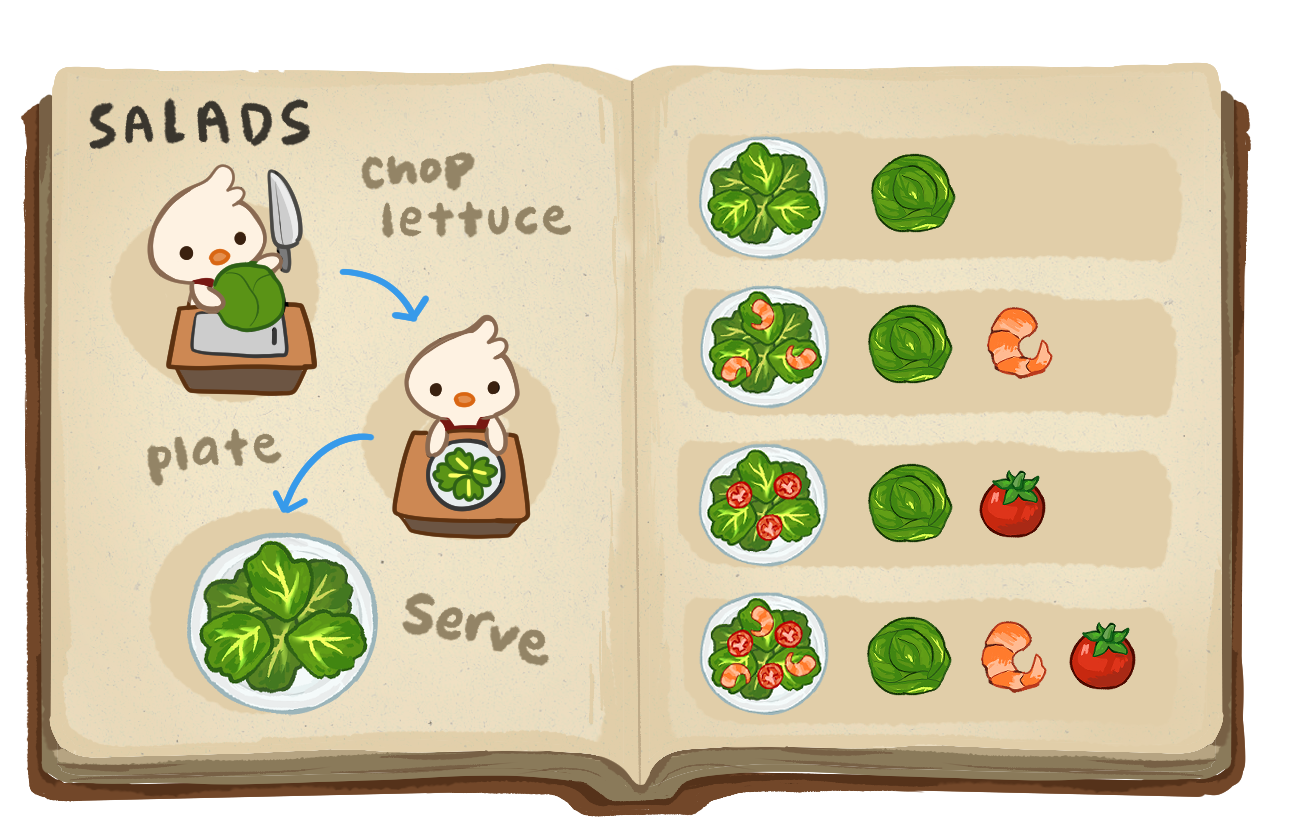 SALADS
chop
lettuce
plate
Serve